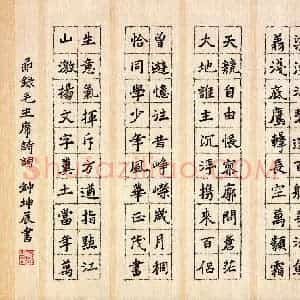 翔淺底鷹擊長空萬類霜
天競自由悵寥廓問蒼茫
大地誰主沉浮攜來百侶
曾遊憶往昔崢嶸歲月稠
恰同學少年風華正茂書
生意氣揮斥方遒指點江
山激揚文字糞土當年萬
錄毛主席詩詞 鍾坤書